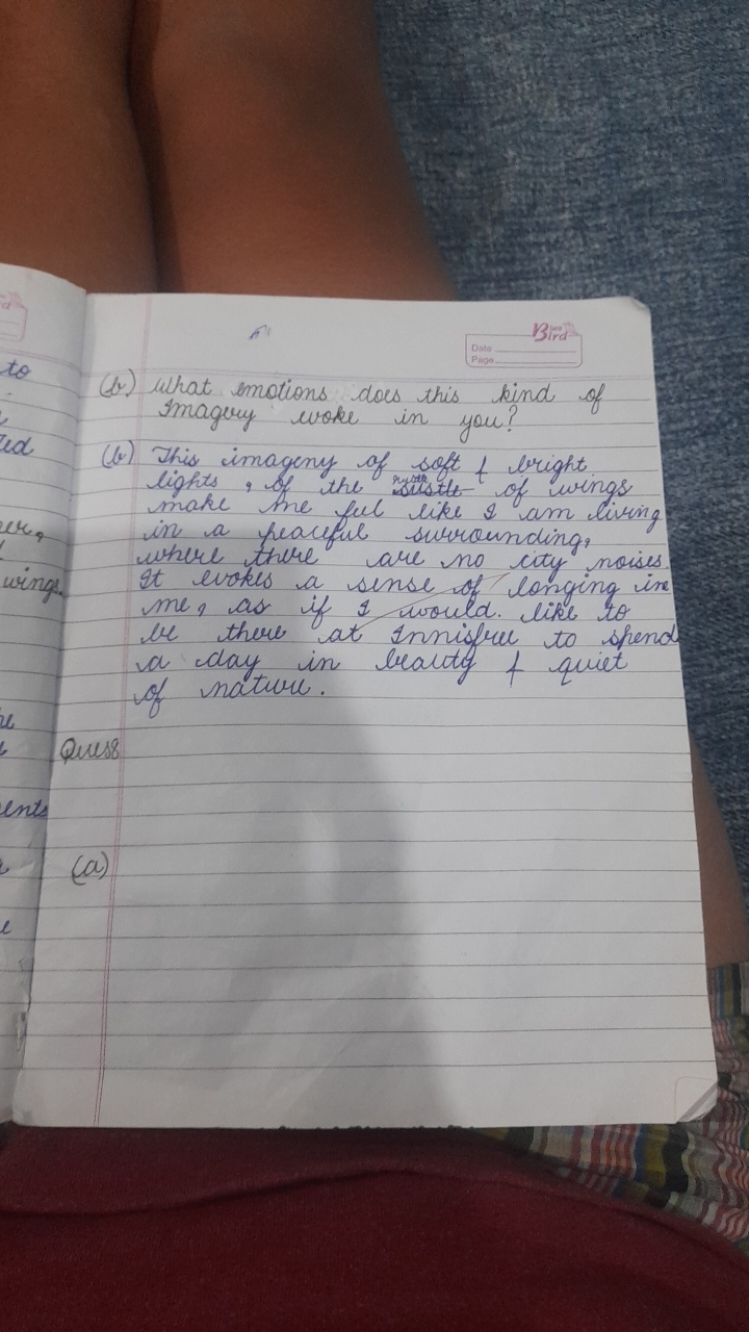 to
ted
wings
ents
Blue Bird
Date
Page
(b) What emotions does this kind of
Imagery evoke in you?
(b) This imageny of soft & bright
lights, of the rustle of wings
make me feel like I am living
in a peaceful surrounding,
where there are no city noises.
It evokes a sense of longing in
me, as if I would. like to
be there at Innisfree to spend
a day in beauty & quiet
of nature.
Ques8
(a)